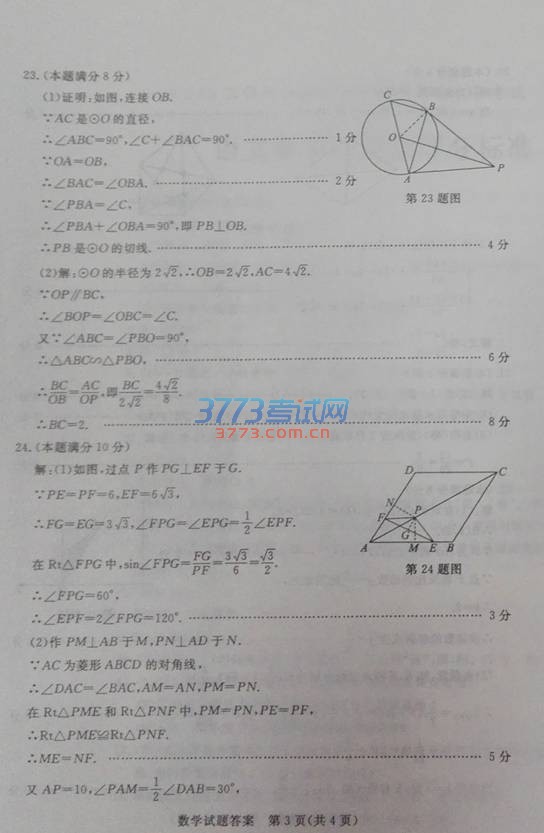 23.(本题满分8分)
(1)证明:如图,连接OB.
∵AC是⊙O的直径,
∴∠ABC=90°,∠C+∠BAC=90°. ………………… 1分
∵OA=OB,
∴∠BAC=∠OBA. ………………… 2分
∵∠PBA=∠C,
∴∠PBA+∠OBA=90°,即PB⊥OB.
∴PB是⊙O的切线. ………………… 4分
C
B
O
A
P
第23题图
(2)解:⊙O的半径为2√2,∴OB=2√2,AC=4√2.
∵OP∥BC,
∴∠BOP=∠OBC=∠C.
又∵∠ABC=∠PBO=90°,
∴△ABC∽△PBO, ………………… 6分
∴BC/OB=AC/OP,即BC/2√2=4√2/8.
∴BC=2. ………………… 8分
3773考试网
3773.com.cn
24.(本题满分10分)
解:(1)如图,过点P作PG⊥EF于G.
∵PE=PF=6,EF=6√3,
∴FG=EG=3√3,∠FPG=∠EPG=1/2∠EPF.
在Rt△FPG中,sin∠FPG=FG/PF=3√3/6=√3/2.
∴∠FPG=60°,
∴∠EPF=2∠FPG=120°. ………………… 3分
D
C
N
F
P
G
A
M
E
B
第24题图
(2)作PM⊥AB于M,PN⊥AD于N.
∵AC为菱形ABCD的对角线,
∴∠DAC=∠BAC,AM=AN,PM=PN.
在Rt△PME和Rt△PNF中,PM=PN,PE=PF,
∴Rt△PME≌Rt△PNF.
∴ME=NF. ………………… 5分
又AP=10,∠PAM=1/2∠DAB=30°,
数学试题答案 第3页(共4页)